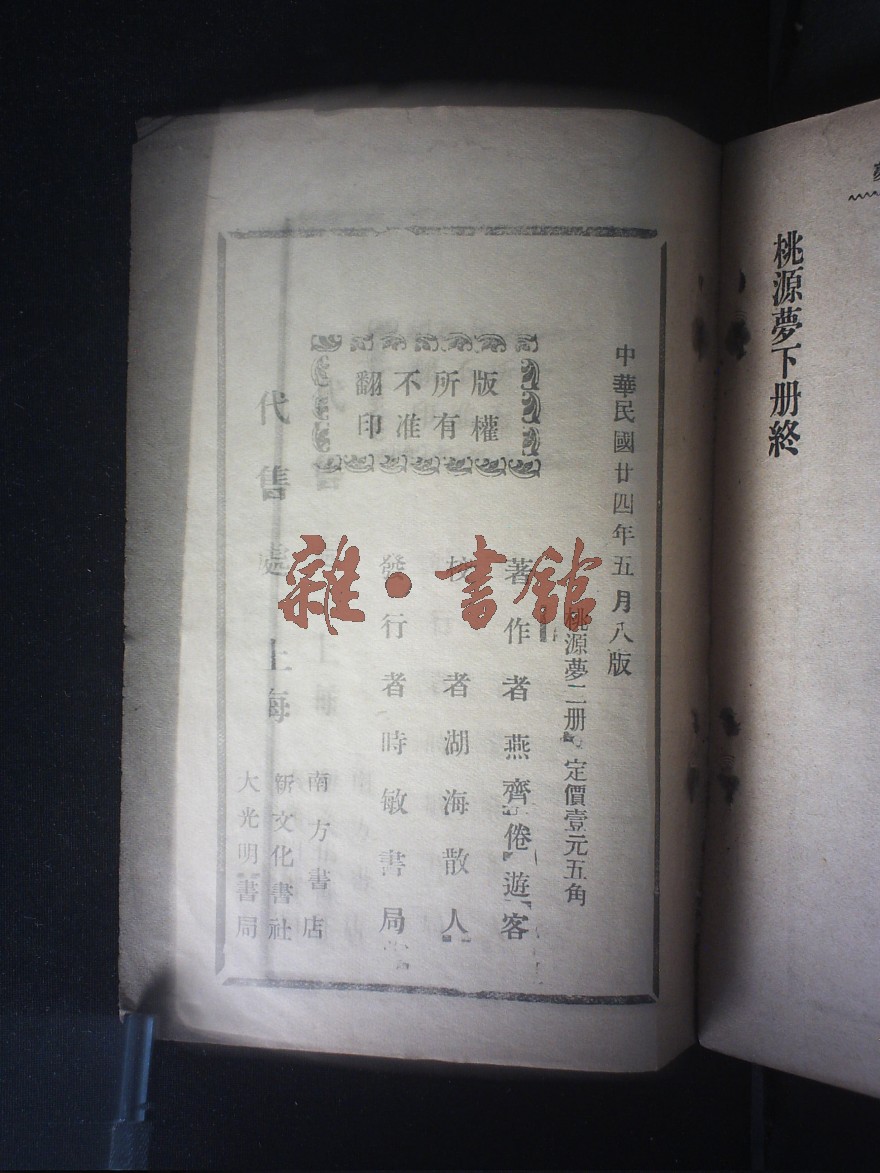 桃源夢下册終
中華民國廿四年五月八版
桃源夢二册 定價壹元五角
版權
所有
不准
翻印
著作者燕齊倦遊客
校者湖海散人
發行者時敏書局
代售處上海
南方書店
新文化書社
大光明書局
雜·書館